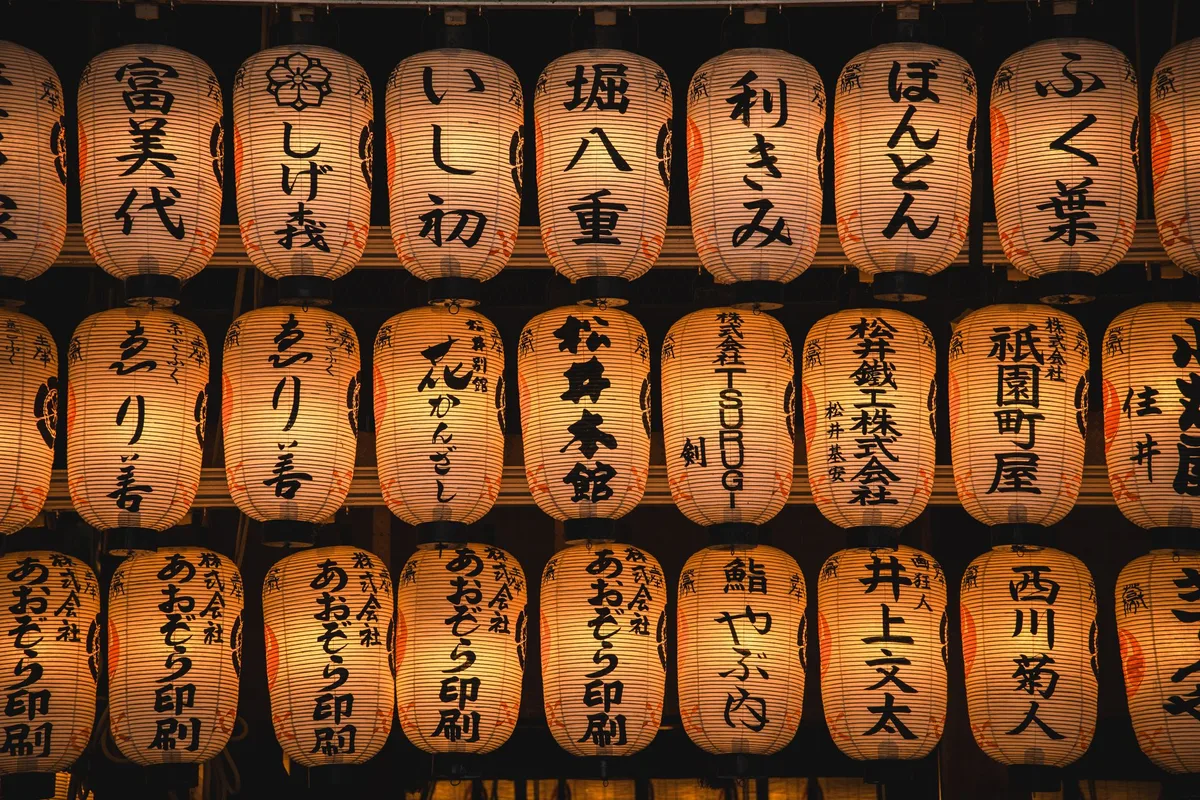 富美代
しげ森
いし初
堀八重
利きみ
ぼんとん
ふく葉
京ごふく
ゑり善
京ごふく
ゑり善
松井別館
花かんざし
松井本館
株式会社TSURUGI
剣
松井鐵工株式会社
松井基安
株式会社
祇園町屋
住井
株式会社
あおぞら印刷
株式会社
あおぞら印刷
株式会社
あおぞら印刷
株式会社
あおぞら印刷
株式会社
あおぞら印刷
鮨やぶ内
画狂人
井上文太
西川菊人